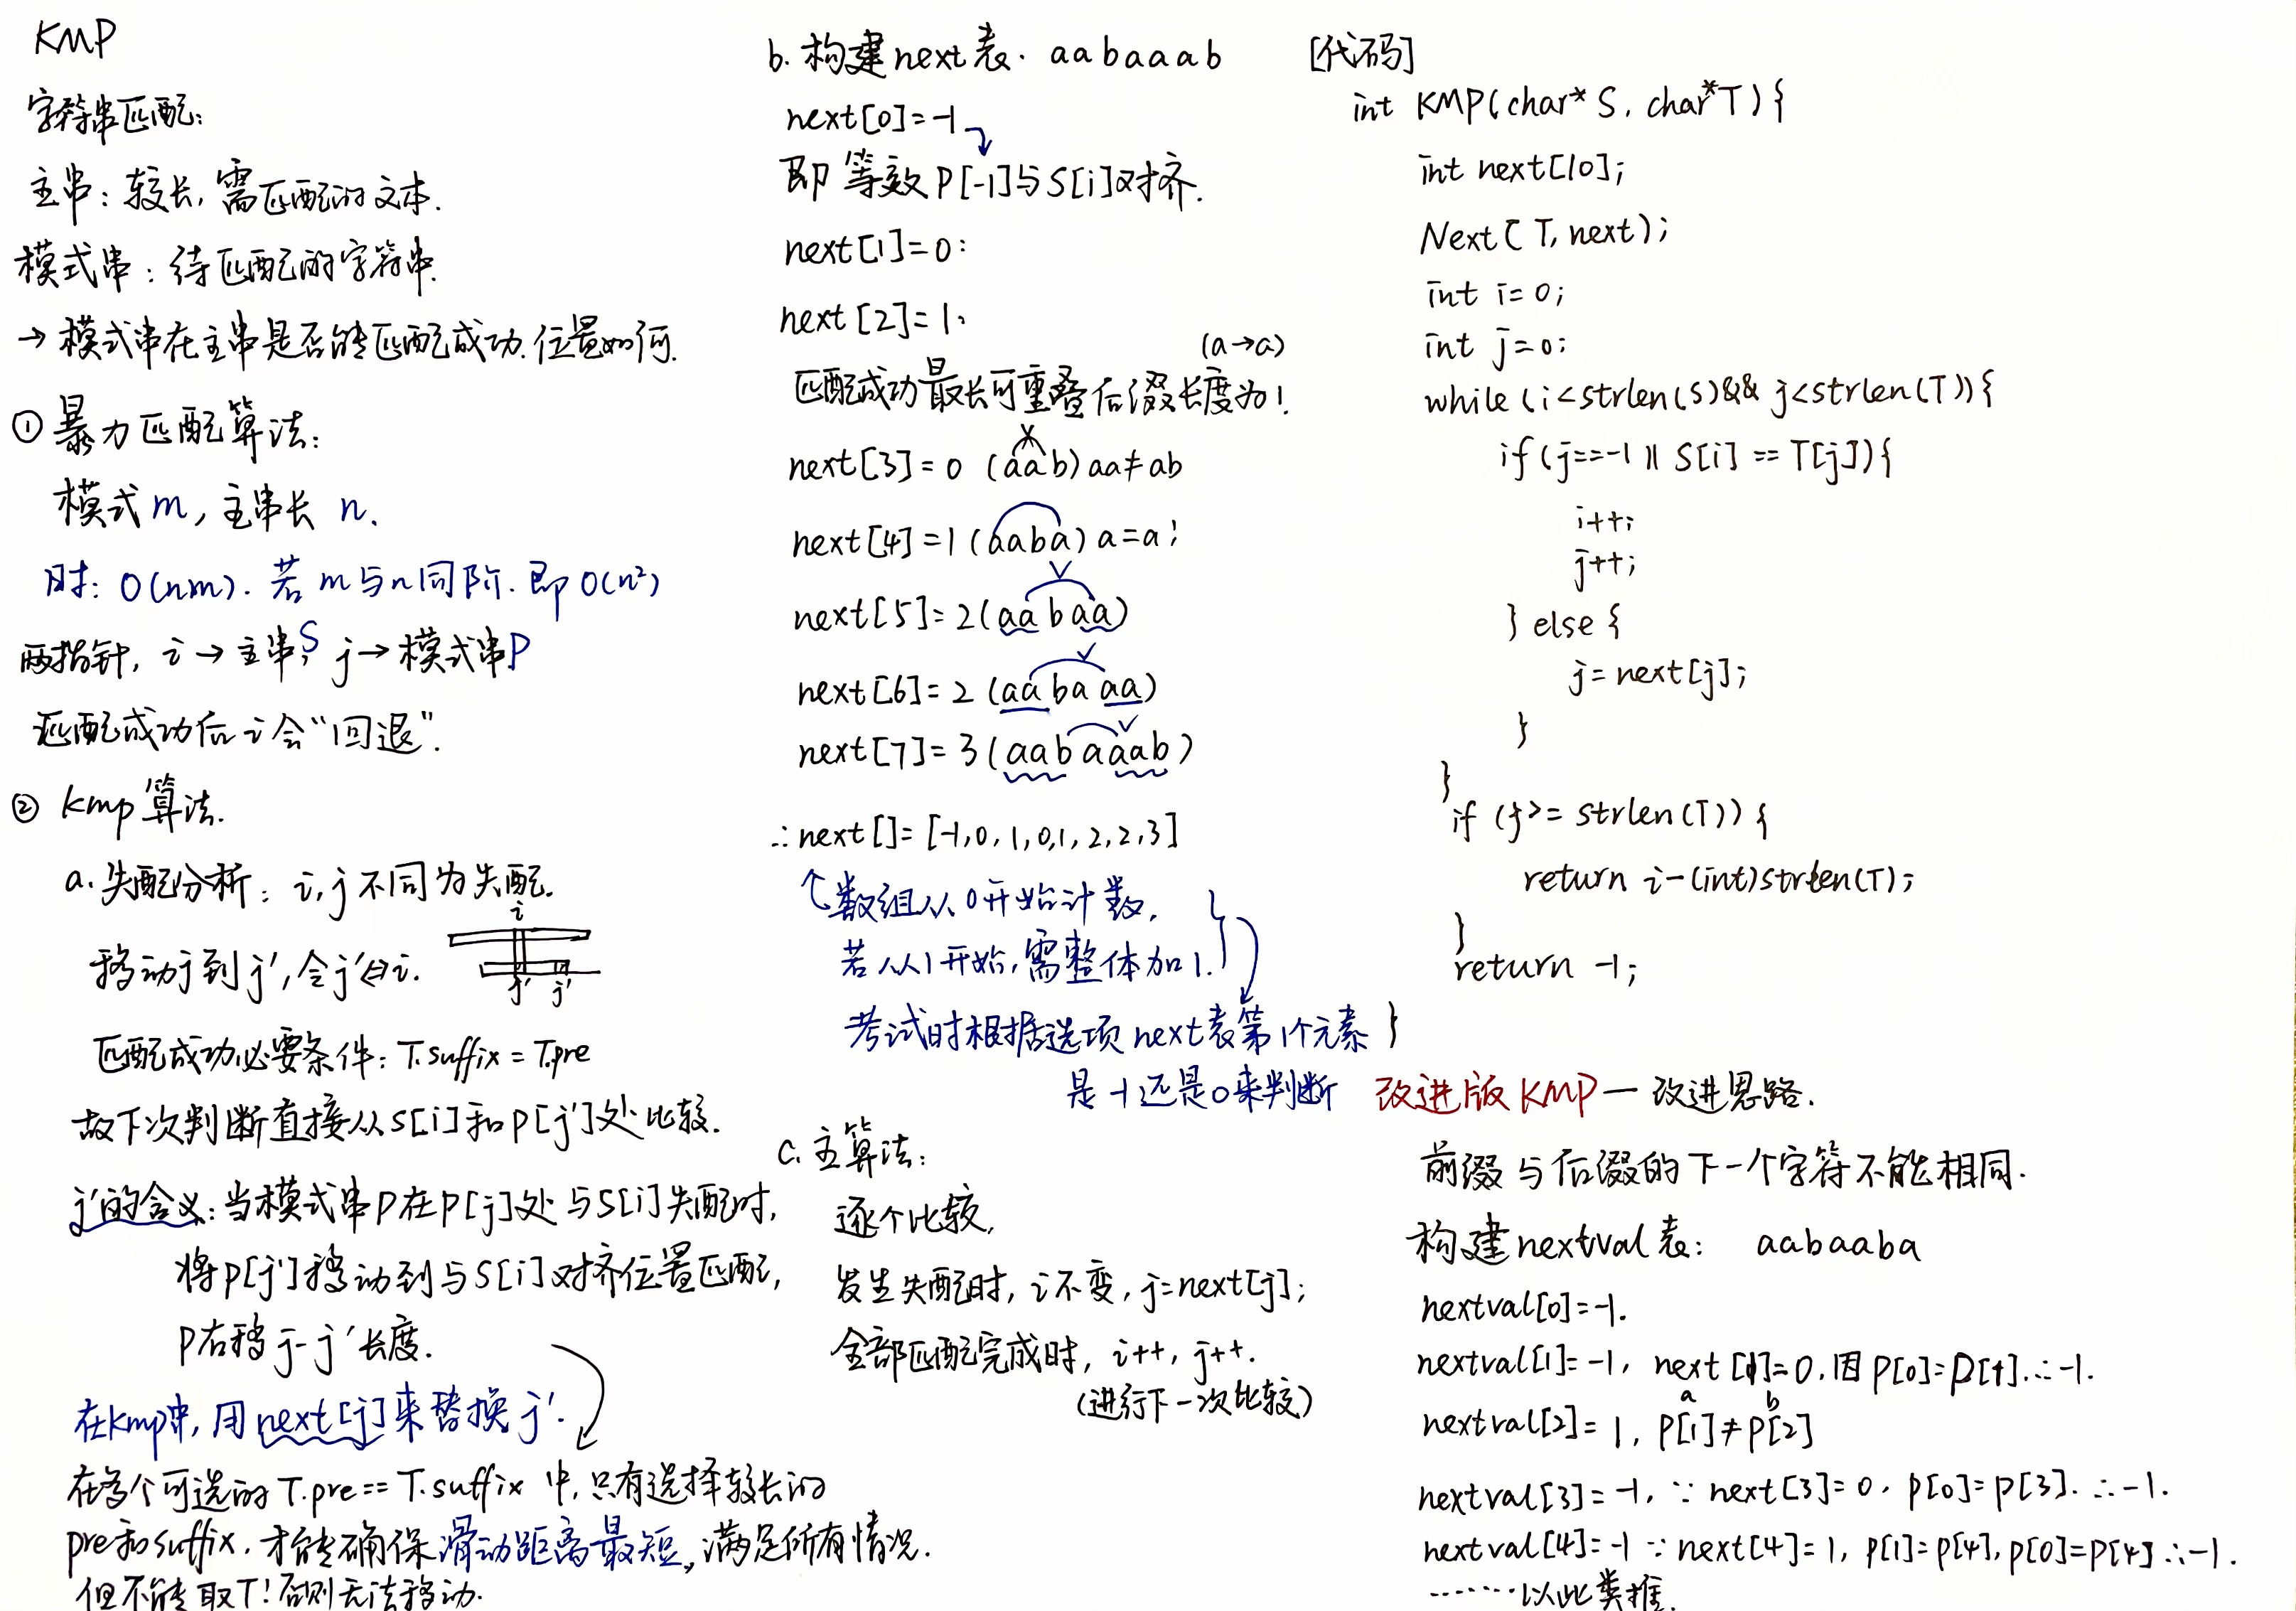 KMP
字符串匹配:
主串: 较长, 需匹配的文本.
模式串: 待匹配的字符串.
→ 模式串在主串是否能匹配成功. 位置如何.
① 暴力匹配算法:
模式 m, 主串长 n.
时: O(nm). 若 m 与 n 同阶. 即 O(n²)
两指针, i → 主串S, j → 模式串P
匹配成功后 i 会“回退”.
② kmp 算法.
a. 失配分析: i, j 不同为失配.
i
移动 j 到 j′, 令 j′⇔i.
j′ j′
匹配成功必要条件: T.suffix = T.pre
故下次判断直接从 S[i] 和 P[j′] 处比较.
j′的含义: 当模式串 P 在 P[j] 处与 S[i] 失配时,
将 P[j′] 移动到与 S[i] 对齐位置匹配,
P右移 j-j′ 长度.
在kmp中, 用 next[j] 来替换 j′.
在多个可选的 T.pre == T.suffix 中, 只有选择较长的
pre和suffix. 才能确保滑动距离最短, 满足所有情况.
但不能取T! 否则无法移动.
b. 构建 next 表. aabaaab
next[0]=-1
即 等效 P[-1] 与 S[i] 对齐.
next[1]=0:
next[2]=1.
(a→a)
匹配成功最长可重叠后缀长度为1.
next[3]=0 (aab) aa≠ab
next[4]=1 (aaba) a=a!
next[5]=2 (aabaa)
next[6]=2 (aabaaa)
next[7]=3 (aabaaab)
∴ next[]=[-1,0,1,0,1,2,2,3]
↑数组从0开始计数.
若从1开始, 需整体加1.
考试时根据选项 next表第1个元素
是-1还是0来判断
c. 主算法:
逐个比较,
发生失配时, i不变, j=next[j];
全部匹配完成时, i++, j++.
(进行下一次比较)
[代码]
int KMP(char* S, char* T){
int next[10];
Next(T, next);
int i=0;
int j=0;
while (i<strlen(S)&& j<strlen(T)){
if (j==-1 || S[i] == T[j]){
i++;
j++;
} else {
j=next[j];
}
}
if (j>= strlen(T)) {
return i-(int)strlen(T);
}
return -1;
}
改进版 KMP — 改进思路.
前缀与后缀的下一个字符不能相同.
构建 nextval 表: aabaaba
nextval[0]=-1.
nextval[1]=-1, next[1]=0, 因 P[0]=P[1]. ∴-1.
a b
nextval[2]=1, P[1]≠P[2]
nextval[3]=-1, ∵ next[3]=0, P[0]=P[3]. ∴-1.
nextval[4]=-1 ∵ next[4]=1, P[1]=P[4], P[0]=P[4] ∴-1.
……以此类推.